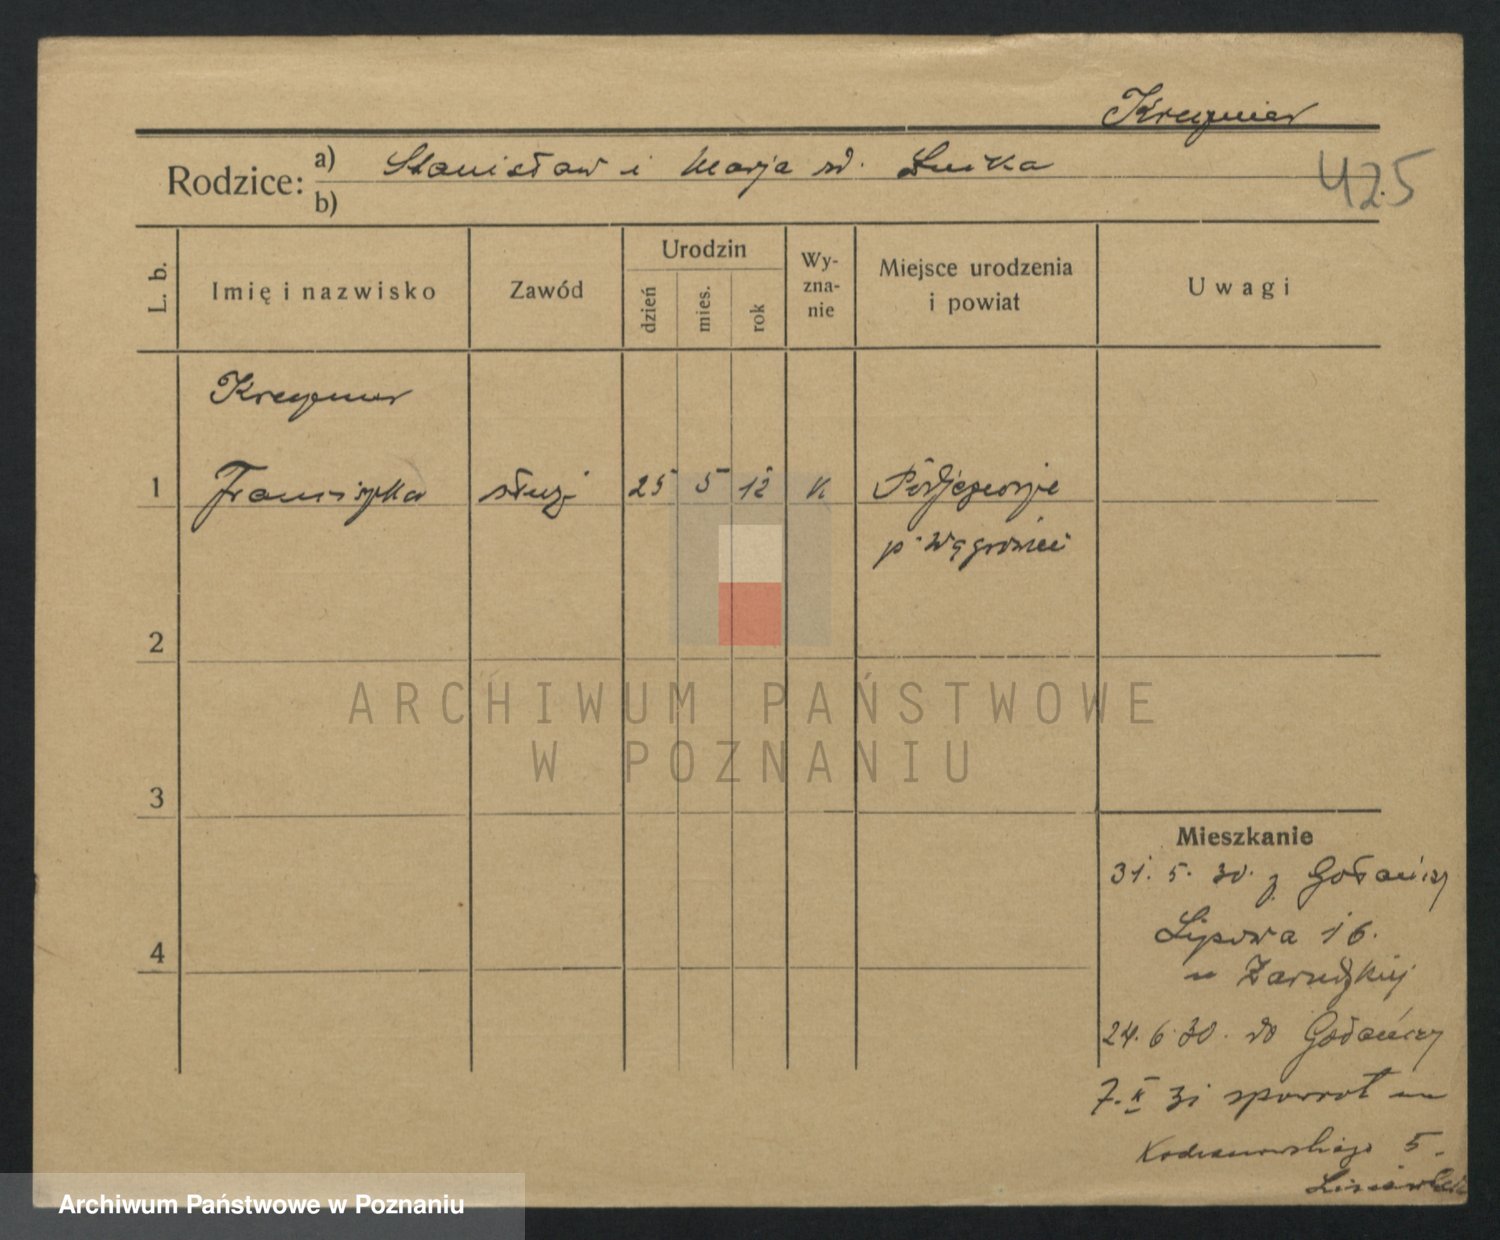 Kregmer
Rodzice: a) Stanisław i Marja zd. Łuika
b)
425
L. b.
Imię i nazwisko
Zawód
Urodzin
dzień mies. rok
Wy-
zna-
nie
Miejsce urodzenia
i powiat
Uwagi
1 Franciszka służ 25 5 12 K
p. Wągrowiec
2
ARCHIWUM PAŃSTWOWE
W POZNANIU
3
Mieszkanie
31. 5. 30. z Gołańczy
Lipowa 16.
4
u Zarudzkiej
24. 6. 30. do Gołańczy
7. X 31 spowrot
5.
Archiwum Państwowe w Poznaniu